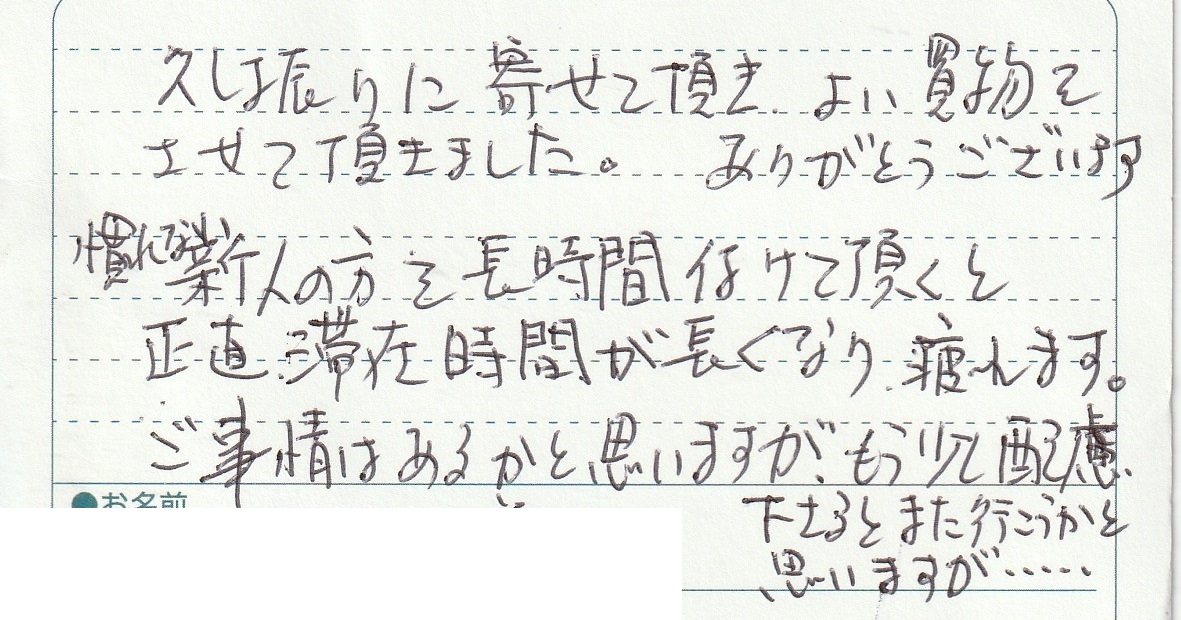 久しぶ振りに寄せて頂き、よい買物を
させて頂きました。 ありがとうございます
慣れない新人の方を長時間付けて頂くと
正直、滞在時間が長くなり、疲れます。
ご事情はあるかと思いますが、もう少し配慮
●お名前
下さるとまた行こうかと
思いますが‥‥‥